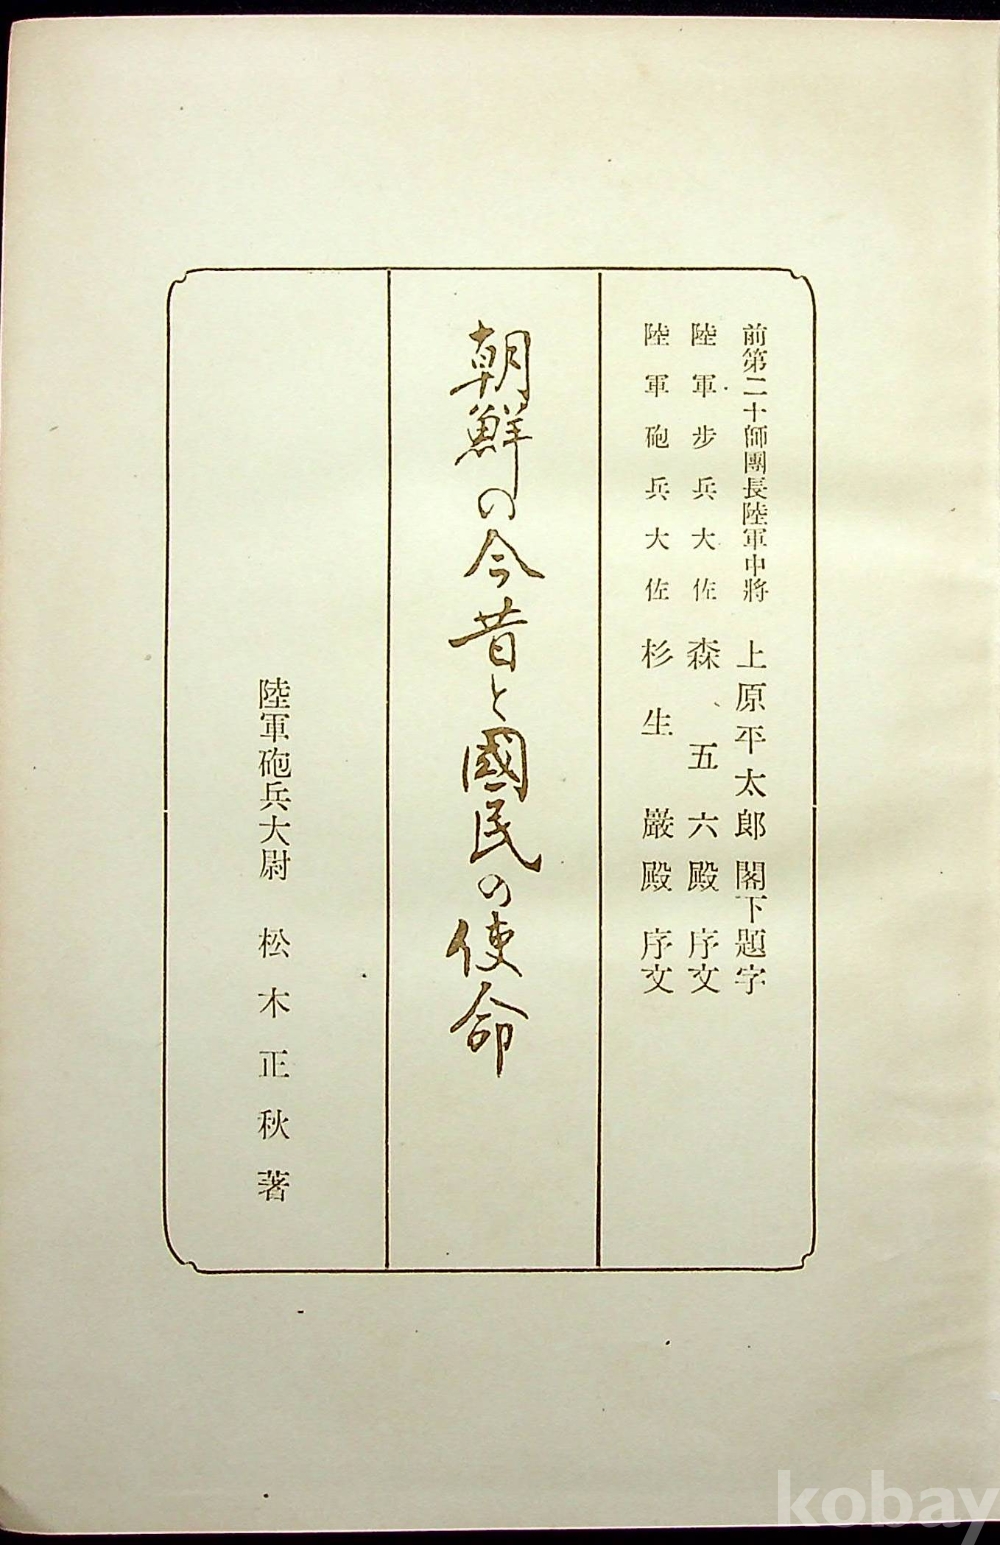 前第二十師團長陸軍中將 上原平太郎閣下題字
陸軍步兵大佐 森五六殿序文
陸軍砲兵大佐 杉生巖殿序文
朝鮮の今昔と國民の使命
陸軍砲兵大尉 松木正秋著
kobay